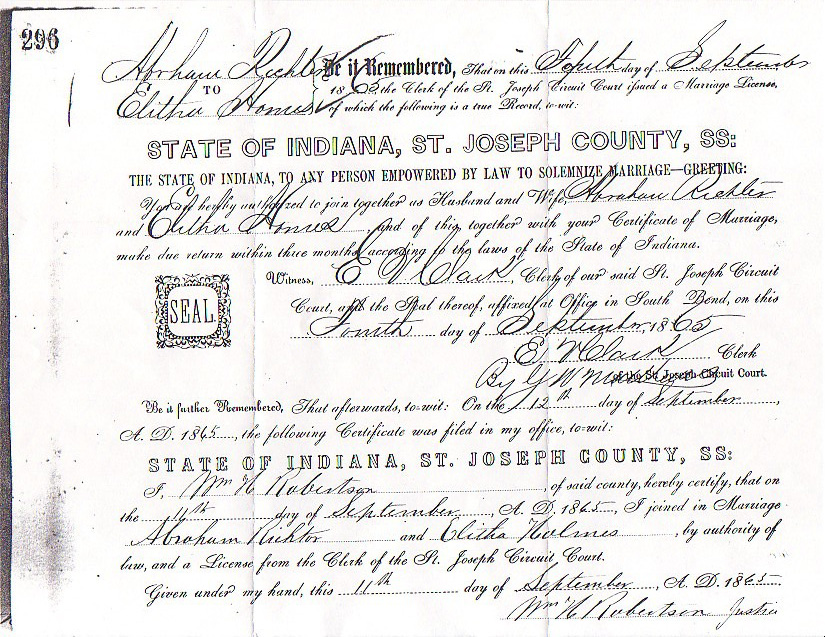 296
Abrham Richter Be it Remembered, That on this Fourth day of September
TO 1865 the Clerk of the St. Joseph Circuit Court issued a Marriage License,
Elitha Homes of which the following is a true Record, to-wit:
STATE OF INDIANA, ST. JOSEPH COUNTY, SS:
THE STATE OF INDIANA, TO ANY PERSON EMPOWERED BY LAW TO SOLEMNIZE MARRIAGE—GREETING:
You are hereby authorized to join together as Husband and Wife Abraham Richter
and Elitha Homes and of this, together with your Certificate of Marriage,
make due return within three months, according to the laws of the State of Indiana.
Witness, E V Clark, Clerk of our said St. Joseph Circuit
SEAL.
Court, and the Seal thereof, affixed at Office in South Bend, on this
Fourth day of September, 1865
E V Clark Clerk
By G W of the St. Joseph Circuit Court.
Be it further Remembered, That afterwards, to-wit: On the 12th day of September,
A. D. 1865, the following Certificate was filed in my office, to-wit:
STATE OF INDIANA, ST. JOSEPH COUNTY, SS:
I, Wm H Robertson of said county, hereby certify, that on
the day of September, A. D. 1865, I joined in Marriage
Abraham Richtor and Elitha Holmes, by authority of
law, and a License from the Clerk of the St. Joseph Circuit Court.
Given under my hand, this 11th day of September, A. D. 1865
Wm H Robertson Justice